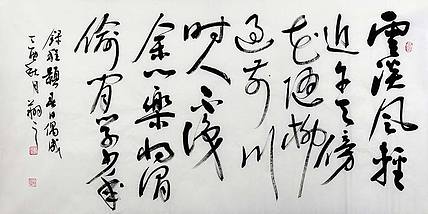 雲淡風輕
近午天傍
花随柳
過前川
时人不識
余心樂将謂
偷闲学少年
録程颢春日偶成
丁酉秋月